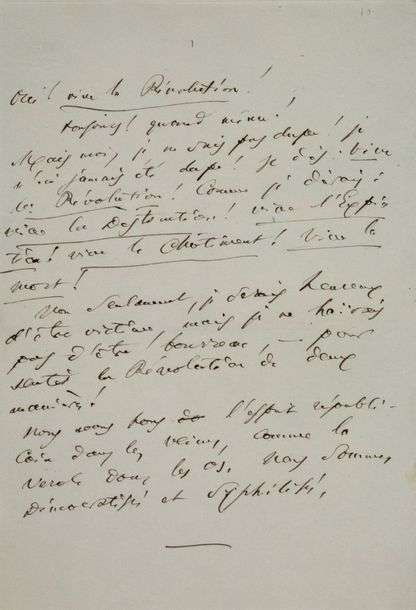 Oui! vive la Révolution!
toujours! quand même!
Mais moi, je ne suis pas dupe! je
n'ai jamais été dupe! je dis Vive
la Révolution! comme je dirais :
vive la Destruction! vive l'Expia
tion! vive le Châtiment! Vive la
mort!
Non seulement, je serais heureux
d'être victime, mais je ne haïrais
pas d'être bourreau, — pour
sentir la Révolution de deux
manières!
Nous avons tous l'esprit républi-
cain dans les veines, comme la
vérole dans les os, Nous sommes
Démocratisés et Syphilisés,